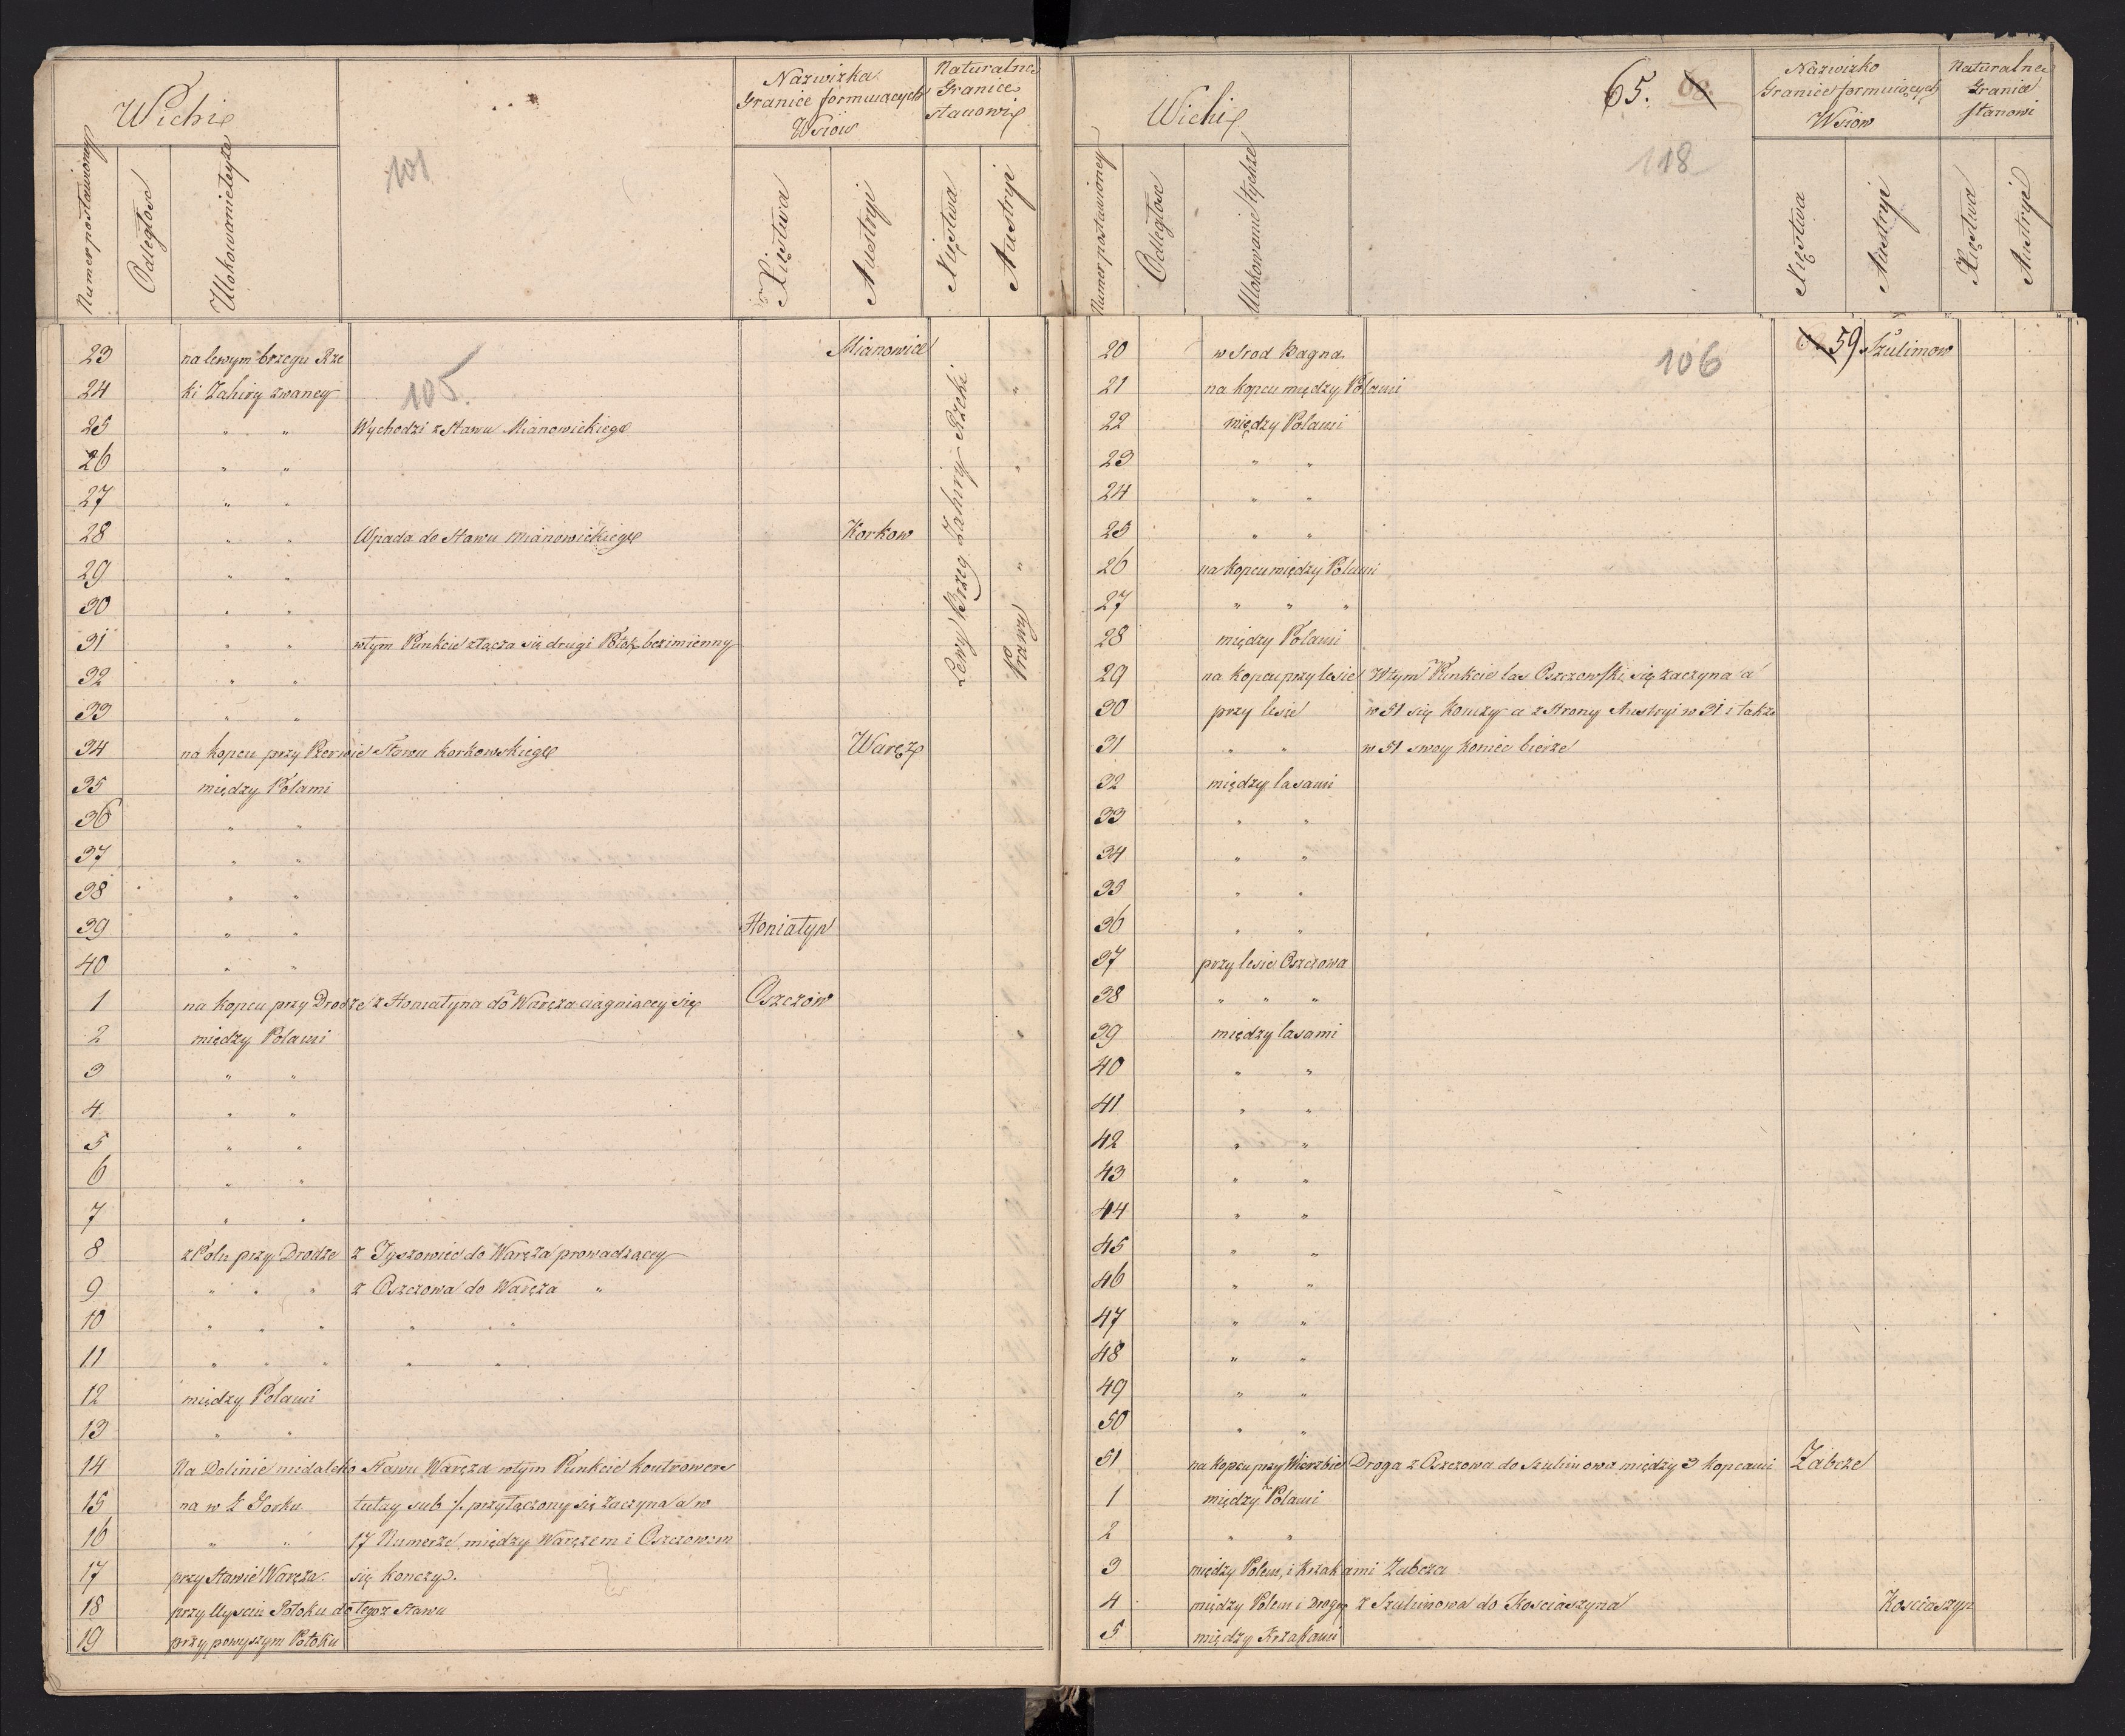 Wichi
Numer postawioney
Odległosc
Ulokowanie teyże
101
Nazwizka
Granice formuiących
Wsiow
Xięstwa
Austryi
Naturalne
Granice
stanowi
Xięstwa
Austryi
23 na lewym brzegu Rze Mianowice
24 ki Zahiry zwaney "
105.
25 " " Wychodzi z Stawu Mianowickiego
26 " " "
27 " "
28 " " Wpada do Stawu Mianowickiego Korkow
29 " " "
30 " "
31 " " w tym Punkcie złącza się drugi Potok bezimienny
32 " "
33 " "
Lewy Brzeg Zahiry Rzeki
Prawy
34 na kopcu przy Przerwie Stawu Korkowskiego Waręz
35 między Polami
36 " "
37 " "
38 " "
39 " " Honiatyn
40 " "
1 na kopcu przy Drodze z Honiatyna do Waręza ciągniącey się Oszczów
2 między Polami
3 " "
4 " "
5 " "
6 " "
7 " "
8 z Polu przy Drodze z Tyszowiec do Waręża prowadzącey
9 " " " z Oszczowa do Waręza "
10 " " " " " "
11 " " " " "
12 między Polami
13 " "
14 Na Dolinie niedaleko Stawu Waręza w tym Punkcie kontrowers
15 na w Ł Gorku tutay sub /. przyłączony się zaczyna a w
16 " " 17 Numerze między Waręzem i Oszczowem
17 przy Stawie Waręza. się konczy.
18 przy Uysciu Potoku do tegoz Stawu
19 przy powyszym Potoku
Wichi
Numer postawioney
Odległosc
Ulokowanie tychże
65. 60.
118
Nazwizko
Granice formuiących
Wsiow
Xięstwa
Austryi
Naturalne
Granice
stanowi
Xięstwa
Austryi
106
59
20 w srod Bagna Szulimow
21 na kopcu między Polami
22 między Polami
23 " "
24 " "
25 " "
26 na kopcu między Polami
27 " " "
28 między Polami
29 na kopcu przy lesie W tym Punkcie las Oszczowski się zaczyna a
30 przy lesie w 51 się konczy a z Strony Austryi w 31 i także
31 " " w 51 swoy koniec bierze
32 między lasami
33 " "
34 " "
35 " "
36 " "
37 przy lesie Oszczowa
38 " " "
39 między lasami
40 " "
41 " "
42 " "
43 " "
44 " "
45 " "
46 " "
47 " "
48 " "
49 " "
50 " "
51 na kopcu przy Wierzbie Droga z Oszczowa do Szulimowa między 3 kopcami Zabcze
1 między Polami
2 " "
3 między Polem i Krzakami Zabcza
4 między Polem i Drogą z Szulimowa do Kosciaszyna Kosciaszyn
5 między Krzakami